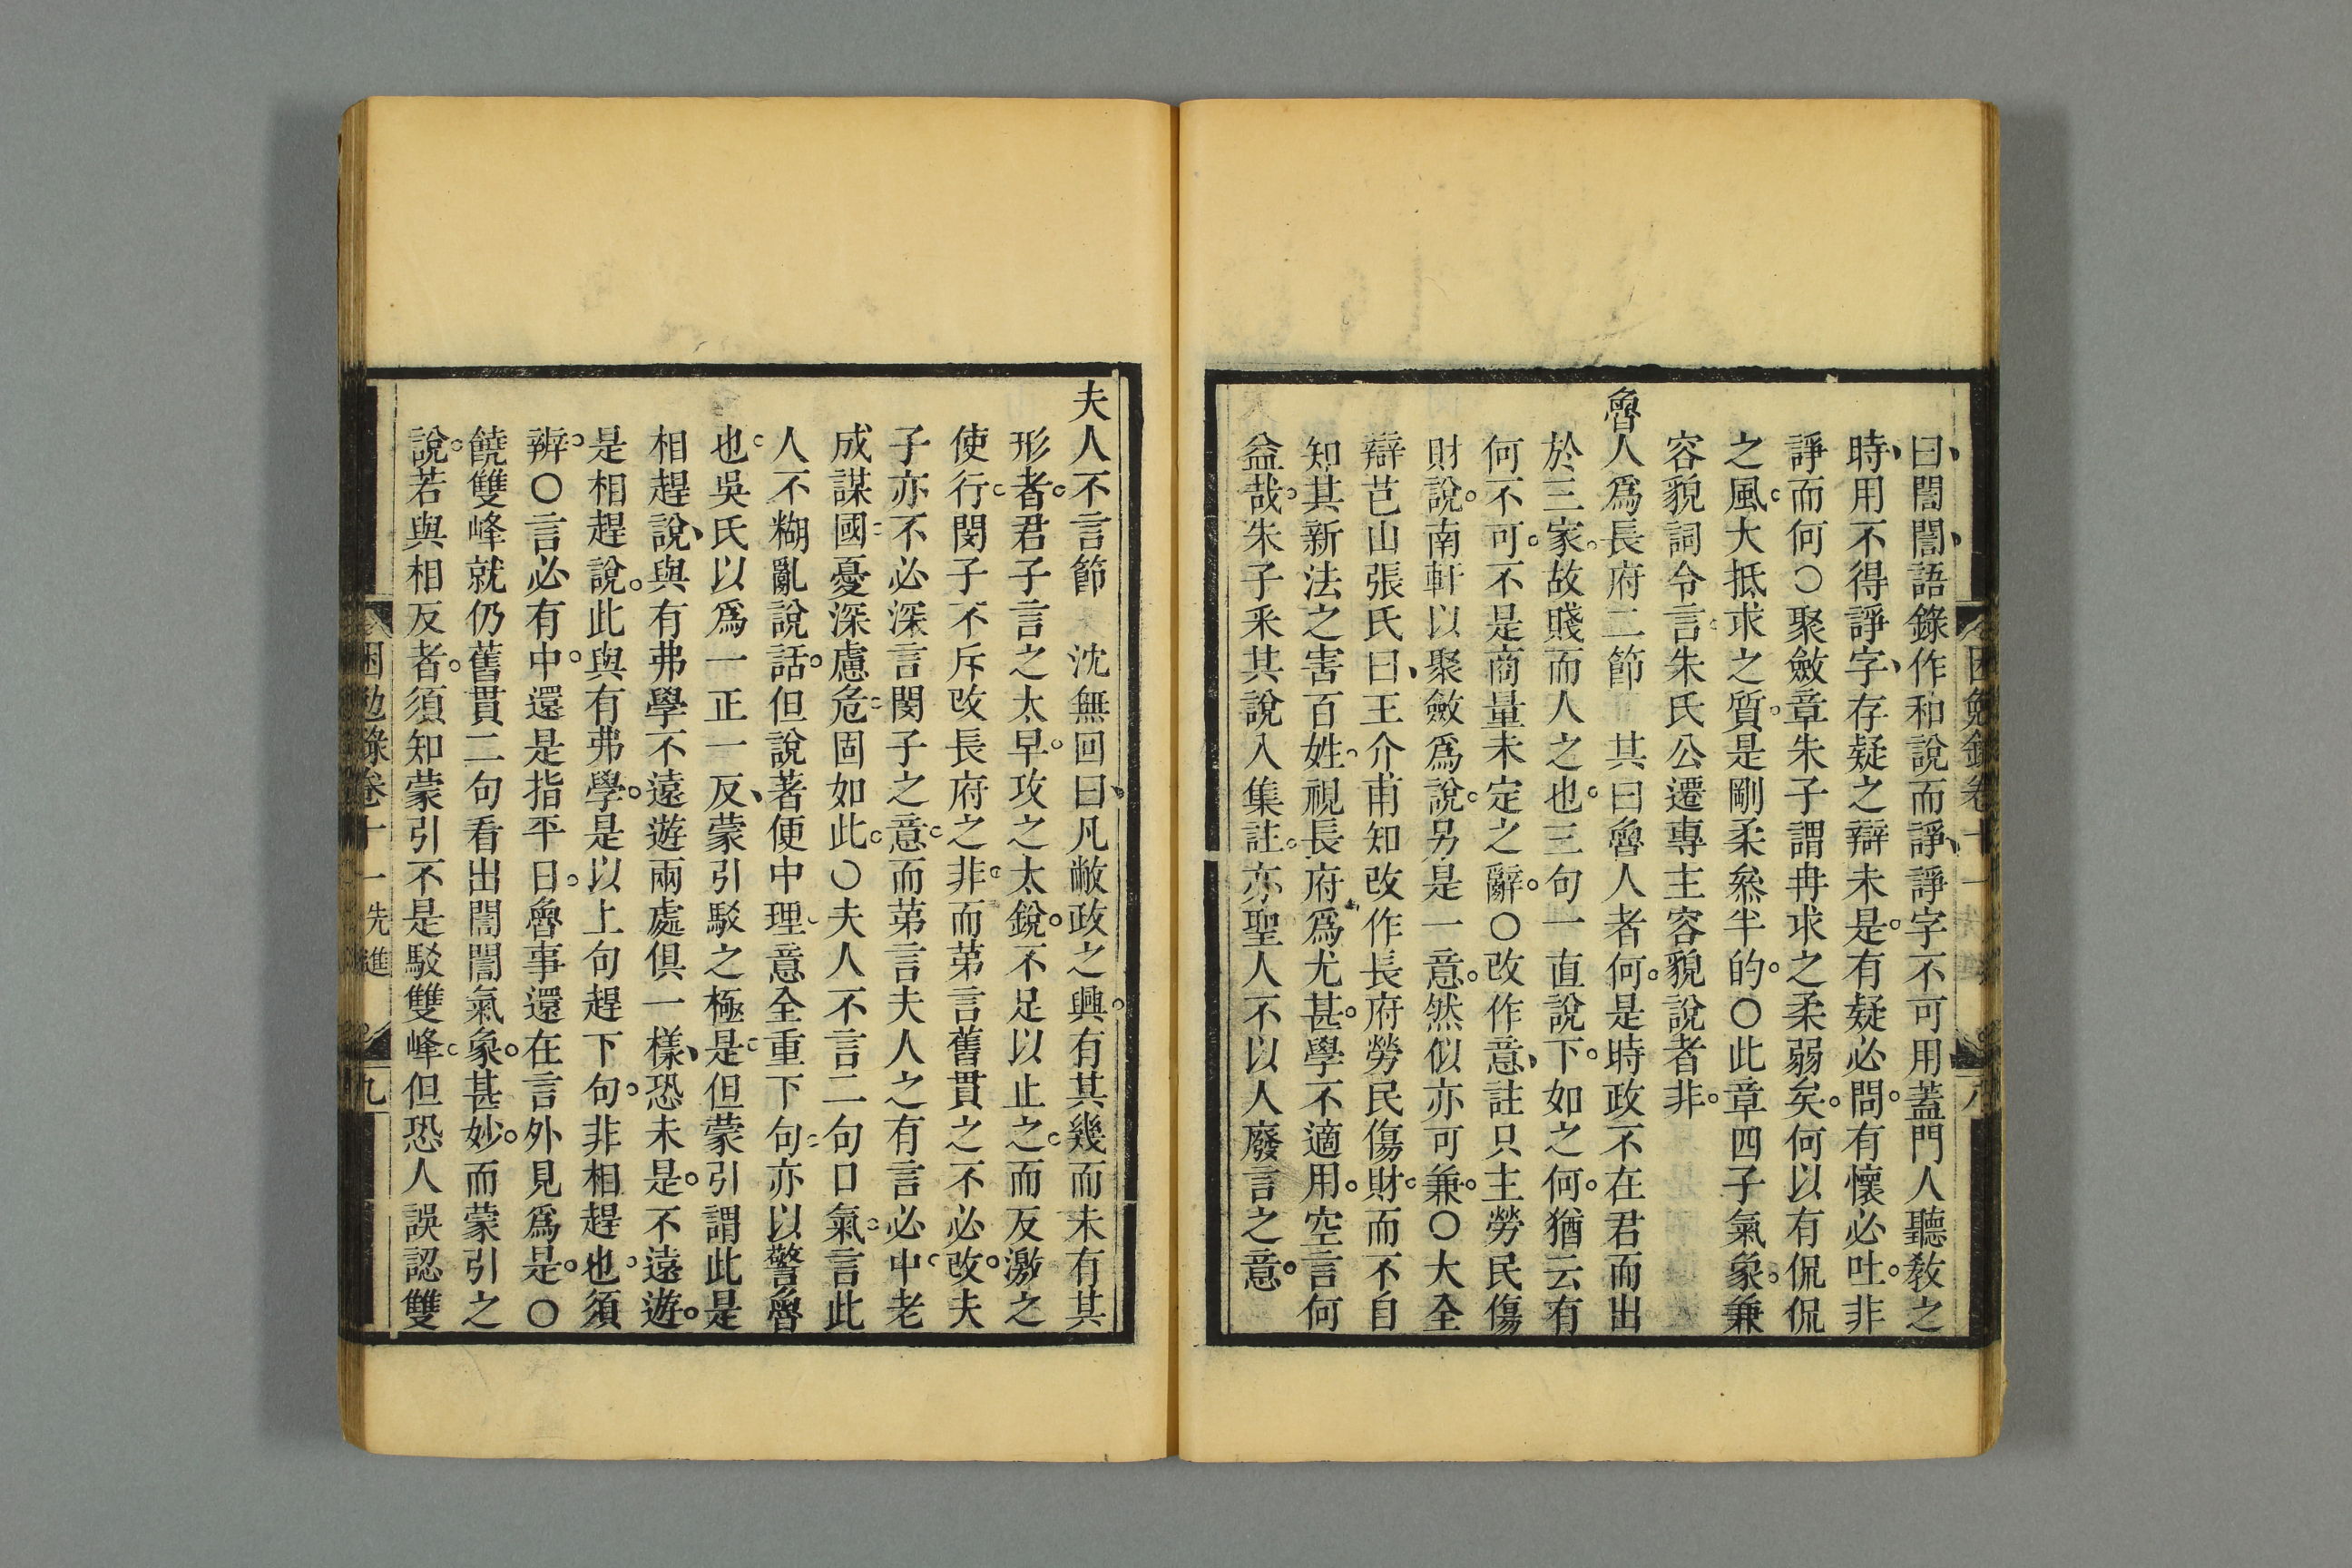 曰、誾誾、語錄作和說而諍、諍字不可用蓋門人聽敎之
時、用不得諍字、存疑之辯未是。有疑必問。有懷必吐。非
諍而何○聚斂章朱子謂冉求之柔弱矣。何以有侃侃
之風。大抵求之質。是剛柔叅半的。○此章四子氣象。兼
容貌詞令言。朱氏公遷專主容貌說者非。
魯人爲長府二節　其曰魯人者何。是時政不在君而出
於三家。故賤而人之也。三句一直說下。如之何。猶云有
何不可。不是商量未定之辭。○改作意、註只主勞民傷
財說。南軒以聚斂爲說。另是一意。然似亦可兼。○大全
辯芑山張氏曰、王介甫知改作長府勞民傷財。而不自
知其新法之害百姓。視長府爲尤甚。學不適用。空言何
益哉。朱子釆其說入集註。亦聖人不以人廢言之意。
夫人不言節　沈無回曰、凡敝政之興。有其幾而未有其
形者。君子言之太早。攻之太銳。不足以止之。而反激之
使行。閔子不斥改長府之非。而苐言舊貫之不必改。夫
子亦不必深言閔子之意。而苐言夫人之有言必中。老
成謀國。憂深慮危。固如此。○夫人不言二句口氣。言此
人不糊亂說話。但說著便中理。意全重下句。亦以警魯
也。吳氏以爲一正一反、蒙引駁之極是。但蒙引謂此是
相趕說、與有弗學不遠遊兩處俱一樣、恐未是。不遠遊。
是相趕說。此與有弗學。是以上句趕下句。非相趕也。須
辨。○言必有中。還是指平日。魯事還在言外見爲是。○
饒雙峰就仍舊貫二句看出誾誾氣象。甚妙。而蒙引之
說。若與相反者。須知蒙引不是駁雙峰。但恐人誤認雙
困勉錄卷十一　先進　九